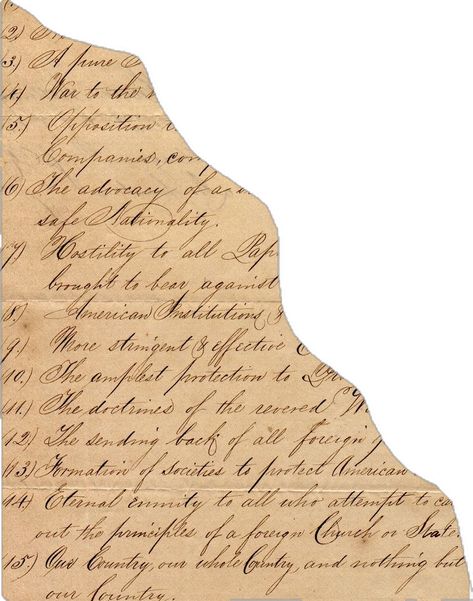 2.)
3.) A pure
4.) War to the
5.) Opposition
Companies,
6.) The advocacy of a
safe Nationality.
7.) Hostility to all Pap
brought to bear against
8.) American Institutions &
9.) More stringent & effective
10.) The amplest protection to
11.) The doctrines of the revered W
12.) The sending back of all foreign
13.) Formation of societies to protect American
14.) Eternal enmity to all who attempt to ca
out the principles of a foreign Church or State.
15.) Our Country, our whole Country, and nothing but
our Country.